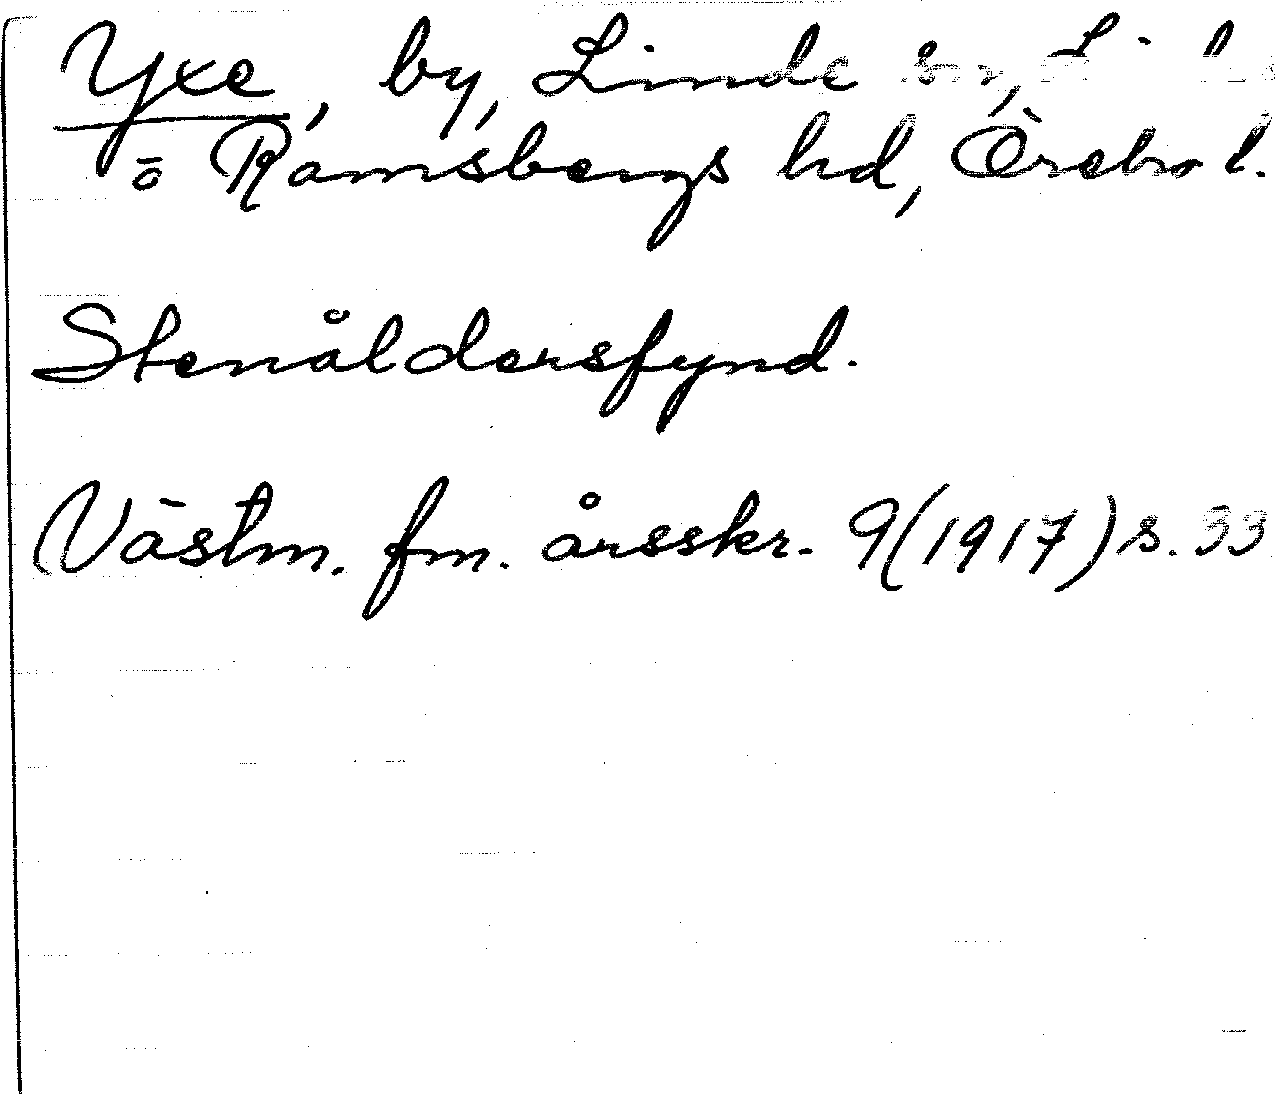 Yxe, by, Linde sn, Linde
o Ramsbergs hd, Örebro l.
Stenåldersfynd.
Västm. fm. årsskr. 9(1917) s. 33